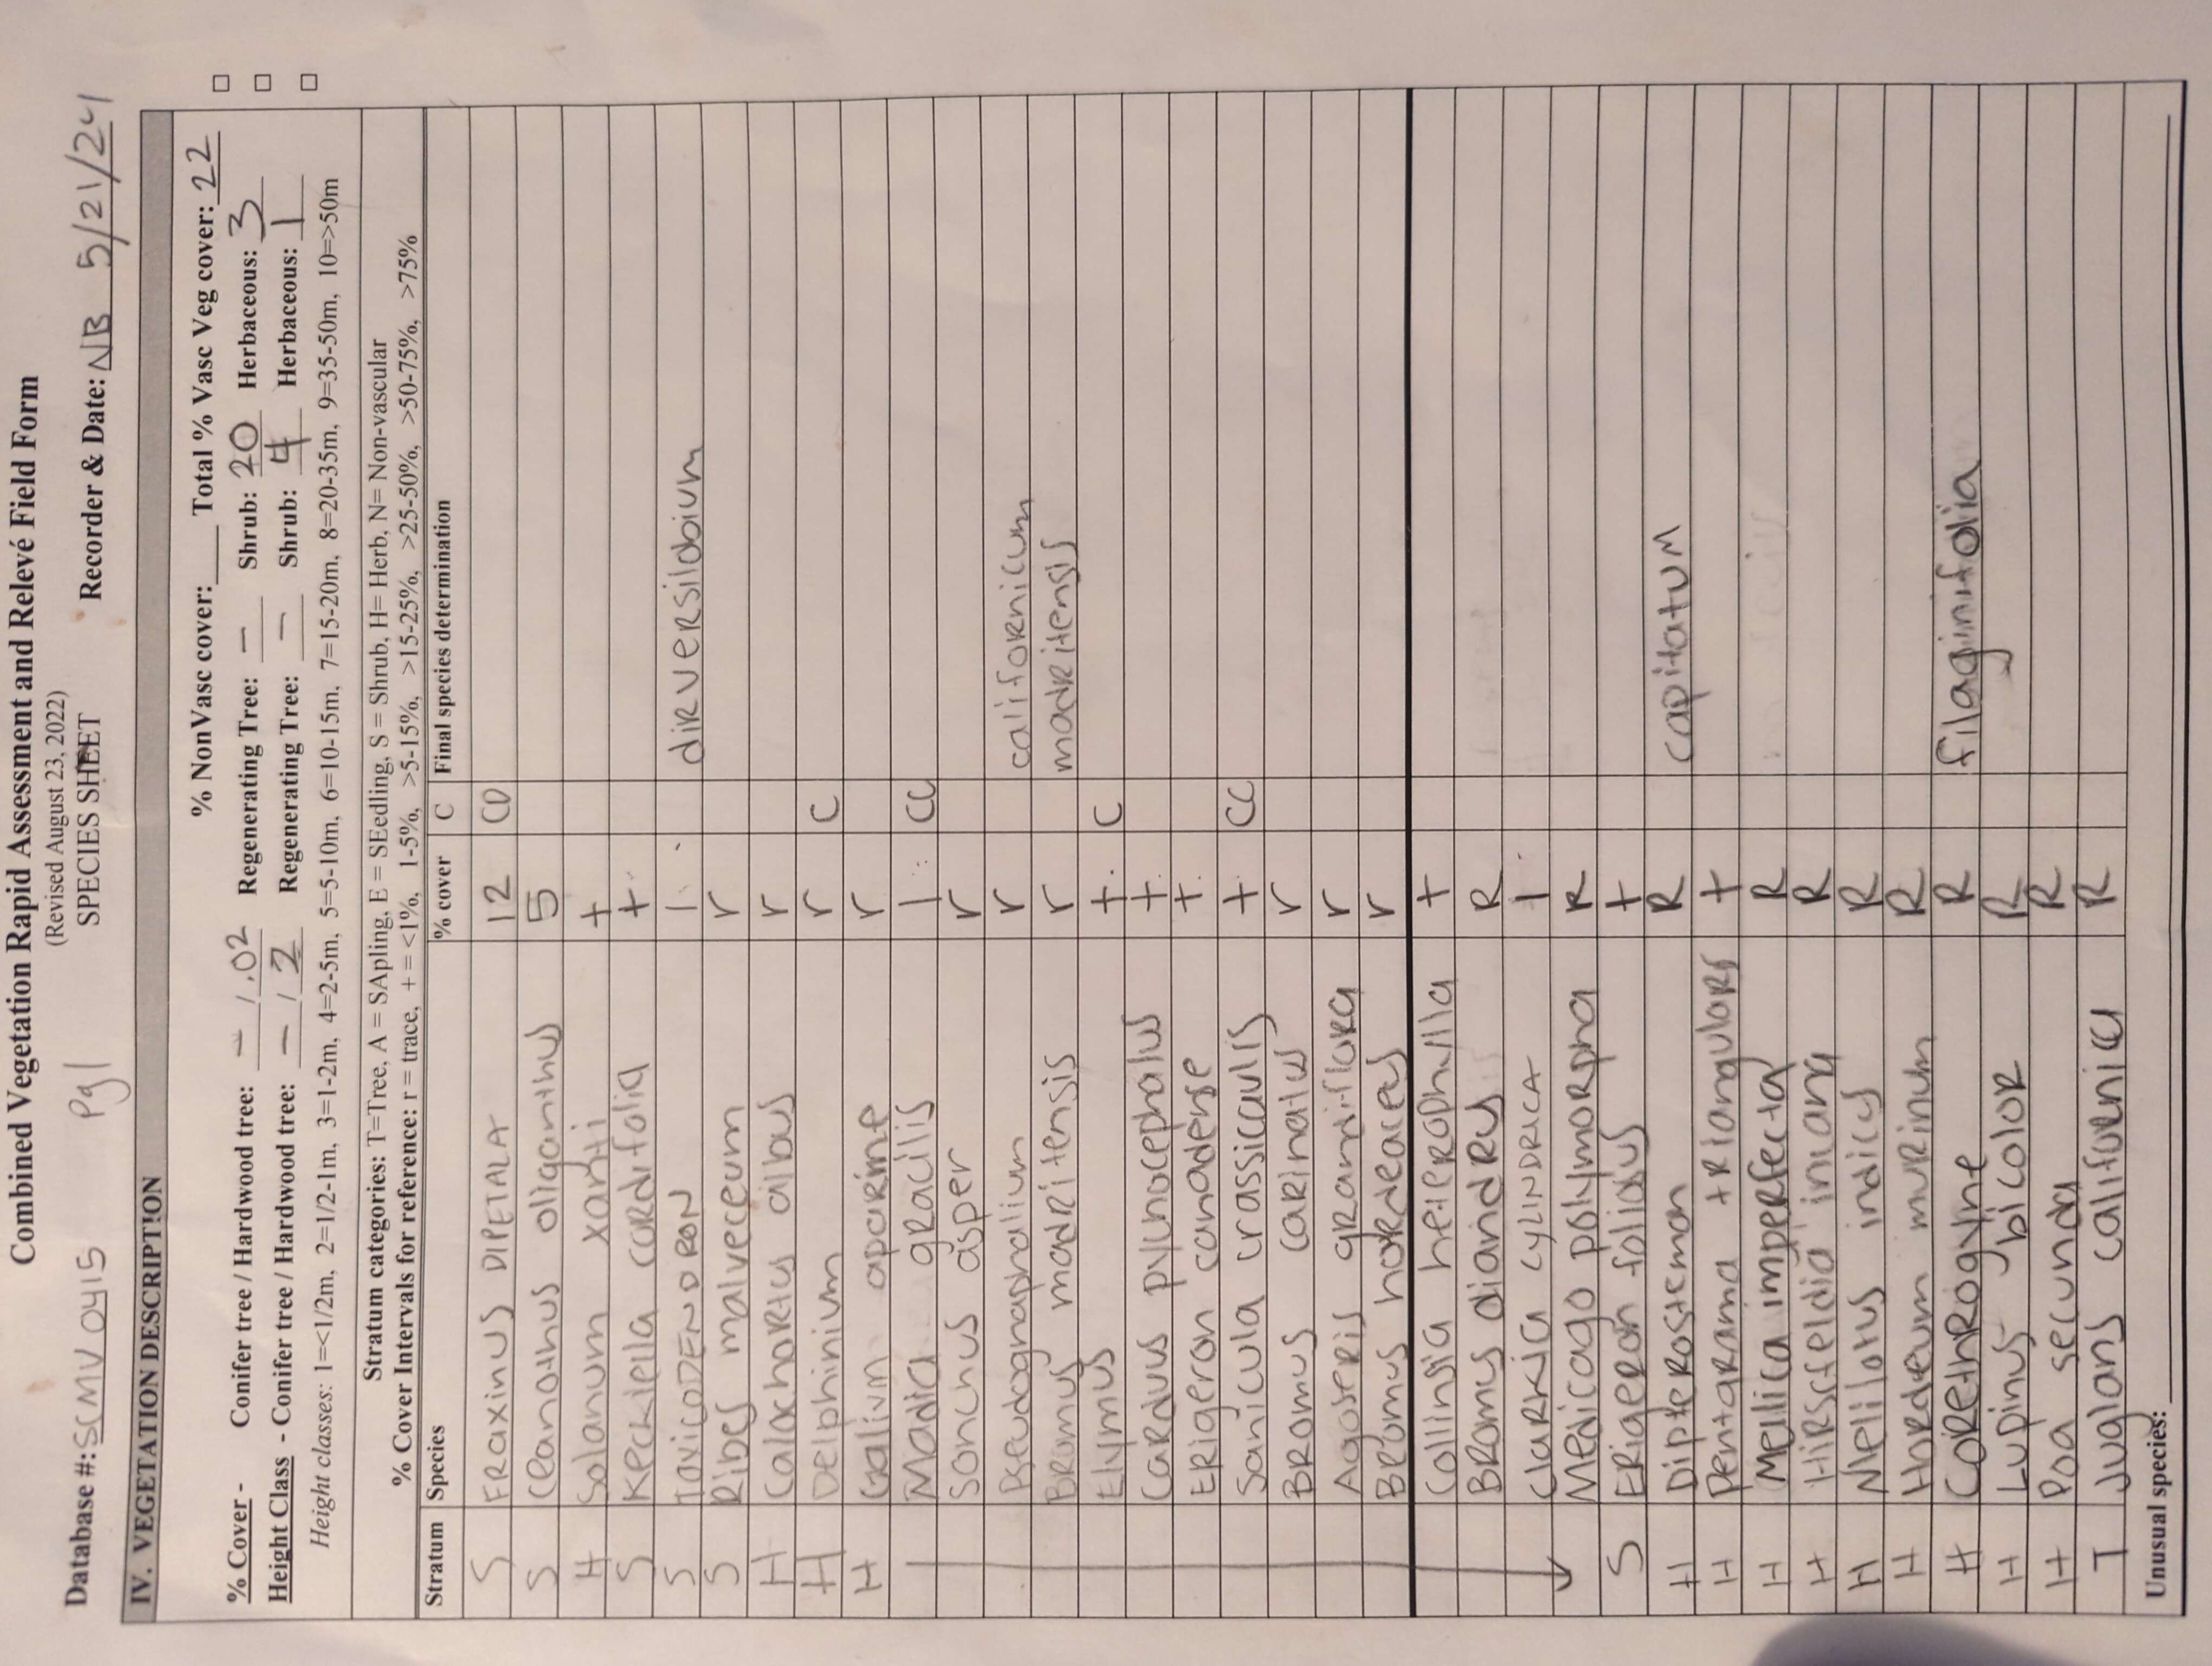 Combined Vegetation Rapid Assessment and Relevé Field Form
(Revised August 23, 2022)
SPECIES SHEET
Database #: SCMV0415 Pg 1 Recorder & Date: NB 5/21/24
IV. VEGETATION DESCRIPTION
% NonVasc cover: ____ Total % Vasc Veg cover: 22
% Cover - Conifer tree / Hardwood tree: — / .02 Regenerating Tree: — Shrub: 20 Herbaceous: 3
Height Class - Conifer tree / Hardwood tree: — / 2 Regenerating Tree: — Shrub: 4 Herbaceous: 1
Height classes: 1=<1/2m, 2=1/2-1m, 3=1-2m, 4=2-5m, 5=5-10m, 6=10-15m, 7=15-20m, 8=20-35m, 9=35-50m, 10=>50m
Stratum categories: T=Tree, A = SApling, E = SEedling, S = Shrub, H= Herb, N= Non-vascular
% Cover Intervals for reference: r = trace, + = <1%, 1-5%, >5-15%, >15-25%, >25-50%, >50-75%, >75%
Stratum Species % cover C Final species determination
S FRAXINUS DIPETALA 12 CD
S Ceanothus oliganthus 5
H Solanum xanti +
S Keckiella cordifolia +
S TOXICODENDRON 1 diRVERsilobium
S Ribes malveceum r
H Calochortus albus r
H Delphinium r C
H Galium aparine r
Madia gracilis 1 CC
Sonchus asper r
Pseudognaphalium r californicum
Bromus madritensis r madritensis
Elymus + C
Carduus pycnocephalus +
Erigeron canadense +
Sanicula crassicaulis + CC
Bromus carinatus r
Agoseris grandiflora r
Bromus hordeaceus r
Collinsia heterophylla +
Bromus diandrus R
Clarkia CYLINDRICA 1
Medicago polymorpha R
S Erigeron foliosus +
H Dipterostemon R capitatum
H Pentagrama triangulars +
H Mellica imperfecta R
H Hirscfeldia incana R
H Melilotus indicus R
H Hordeum murinum R
H Corethrogyne R filaginifolia
H Lupinus bicolor R
H Poa secunda R
T Juglans californica R
Unusual species: